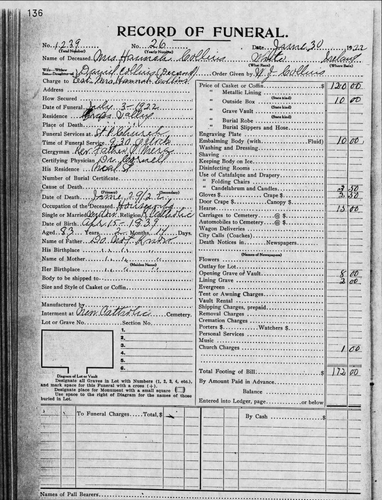 136
RECORD OF FUNERAL.
No. 1239 No. 26 Date June 30 1922
(Total Number) (Yearly Number)
Name of Deceased Mrs Hannah Collins White Ireland
(What Race) (Where Born)
David Collins
Charge to Est. Mrs Hannah Collins Order Given by Collins
Address
How Secured
Date of Funeral July 3-1922
Residence Grass Valley
Funeral Services at St P Church
Time of Funeral Service 9:30 O'clock
Clergyman Rev Father
Certifying Physician Dr
His Residence
Number of Burial Certificate
Cause of Death
Date of Death June 29/22
Occupation of the Deceased Housewife
Single or Married Religion R Catholic
Date of Birth Apr 15-1839
Aged 83 Years 2 Months 14 Days
Name of Father Do Not Know
His Birthplace
Name of Mother
(Maiden Name)
Her Birthplace
Body to be shipped
Size and Style of Casket or Coffin
Manufactured by
Interment at Catholic Cemetery.
Lot or Grave No. Section No.
1.
2.
3.
4.
5.
6.
Diagram of Lot or Vault
Designate all Graves in Lot with Numbers (1, 2, 3, 4, etc.),
and mark space for this Funeral with a cross (+).
Designate place for Monument with a small square
Use space to the right of Diagram for the names of those
buried in Lot.
Price of Casket or Coffin $ 120 00
" Metallic Lining
(State kind)
" Outside Box 10 00
(State kind)
" Grave Vault
(State kind)
" Burial Robe
(State kind)
" Burial Slippers and Hose
Engraving Plate
Embalming Body (with Fluid) 10 00
Washing and Dressing
Shaving
Keeping Body on Ice
Disinfecting Rooms
Use of Catafalque and Drapery
" Folding Chairs
" Candelabrum and Candles 2 50
Gloves $ Crape $ 2.50
Door Crape $ Canopy $
Hearse 15 00
Carriages to Cemetery @ $
Automobiles to Cemetery @ $
Wagon Deliveries
City Calls (Coaches)
Death Notices in Newspapers
Flowers
Outlay for Lot
Opening Grave or Vault 8 00
Lining Grave 3 00
Evergreen
Tent or Awning Charges
Vault Rental
Shipping Charges, prepaid
Removal Charges
Cremation Charges
Porters $ Watchers $
Personal Services
Music
Church Charges 1 00
Total Footing of Bill $ 172 00
By Amount Paid in Advance
Balance
Entered into Ledger, page or below
To Funeral Charges Total, $ By Cash $
Names of Pall Bearers